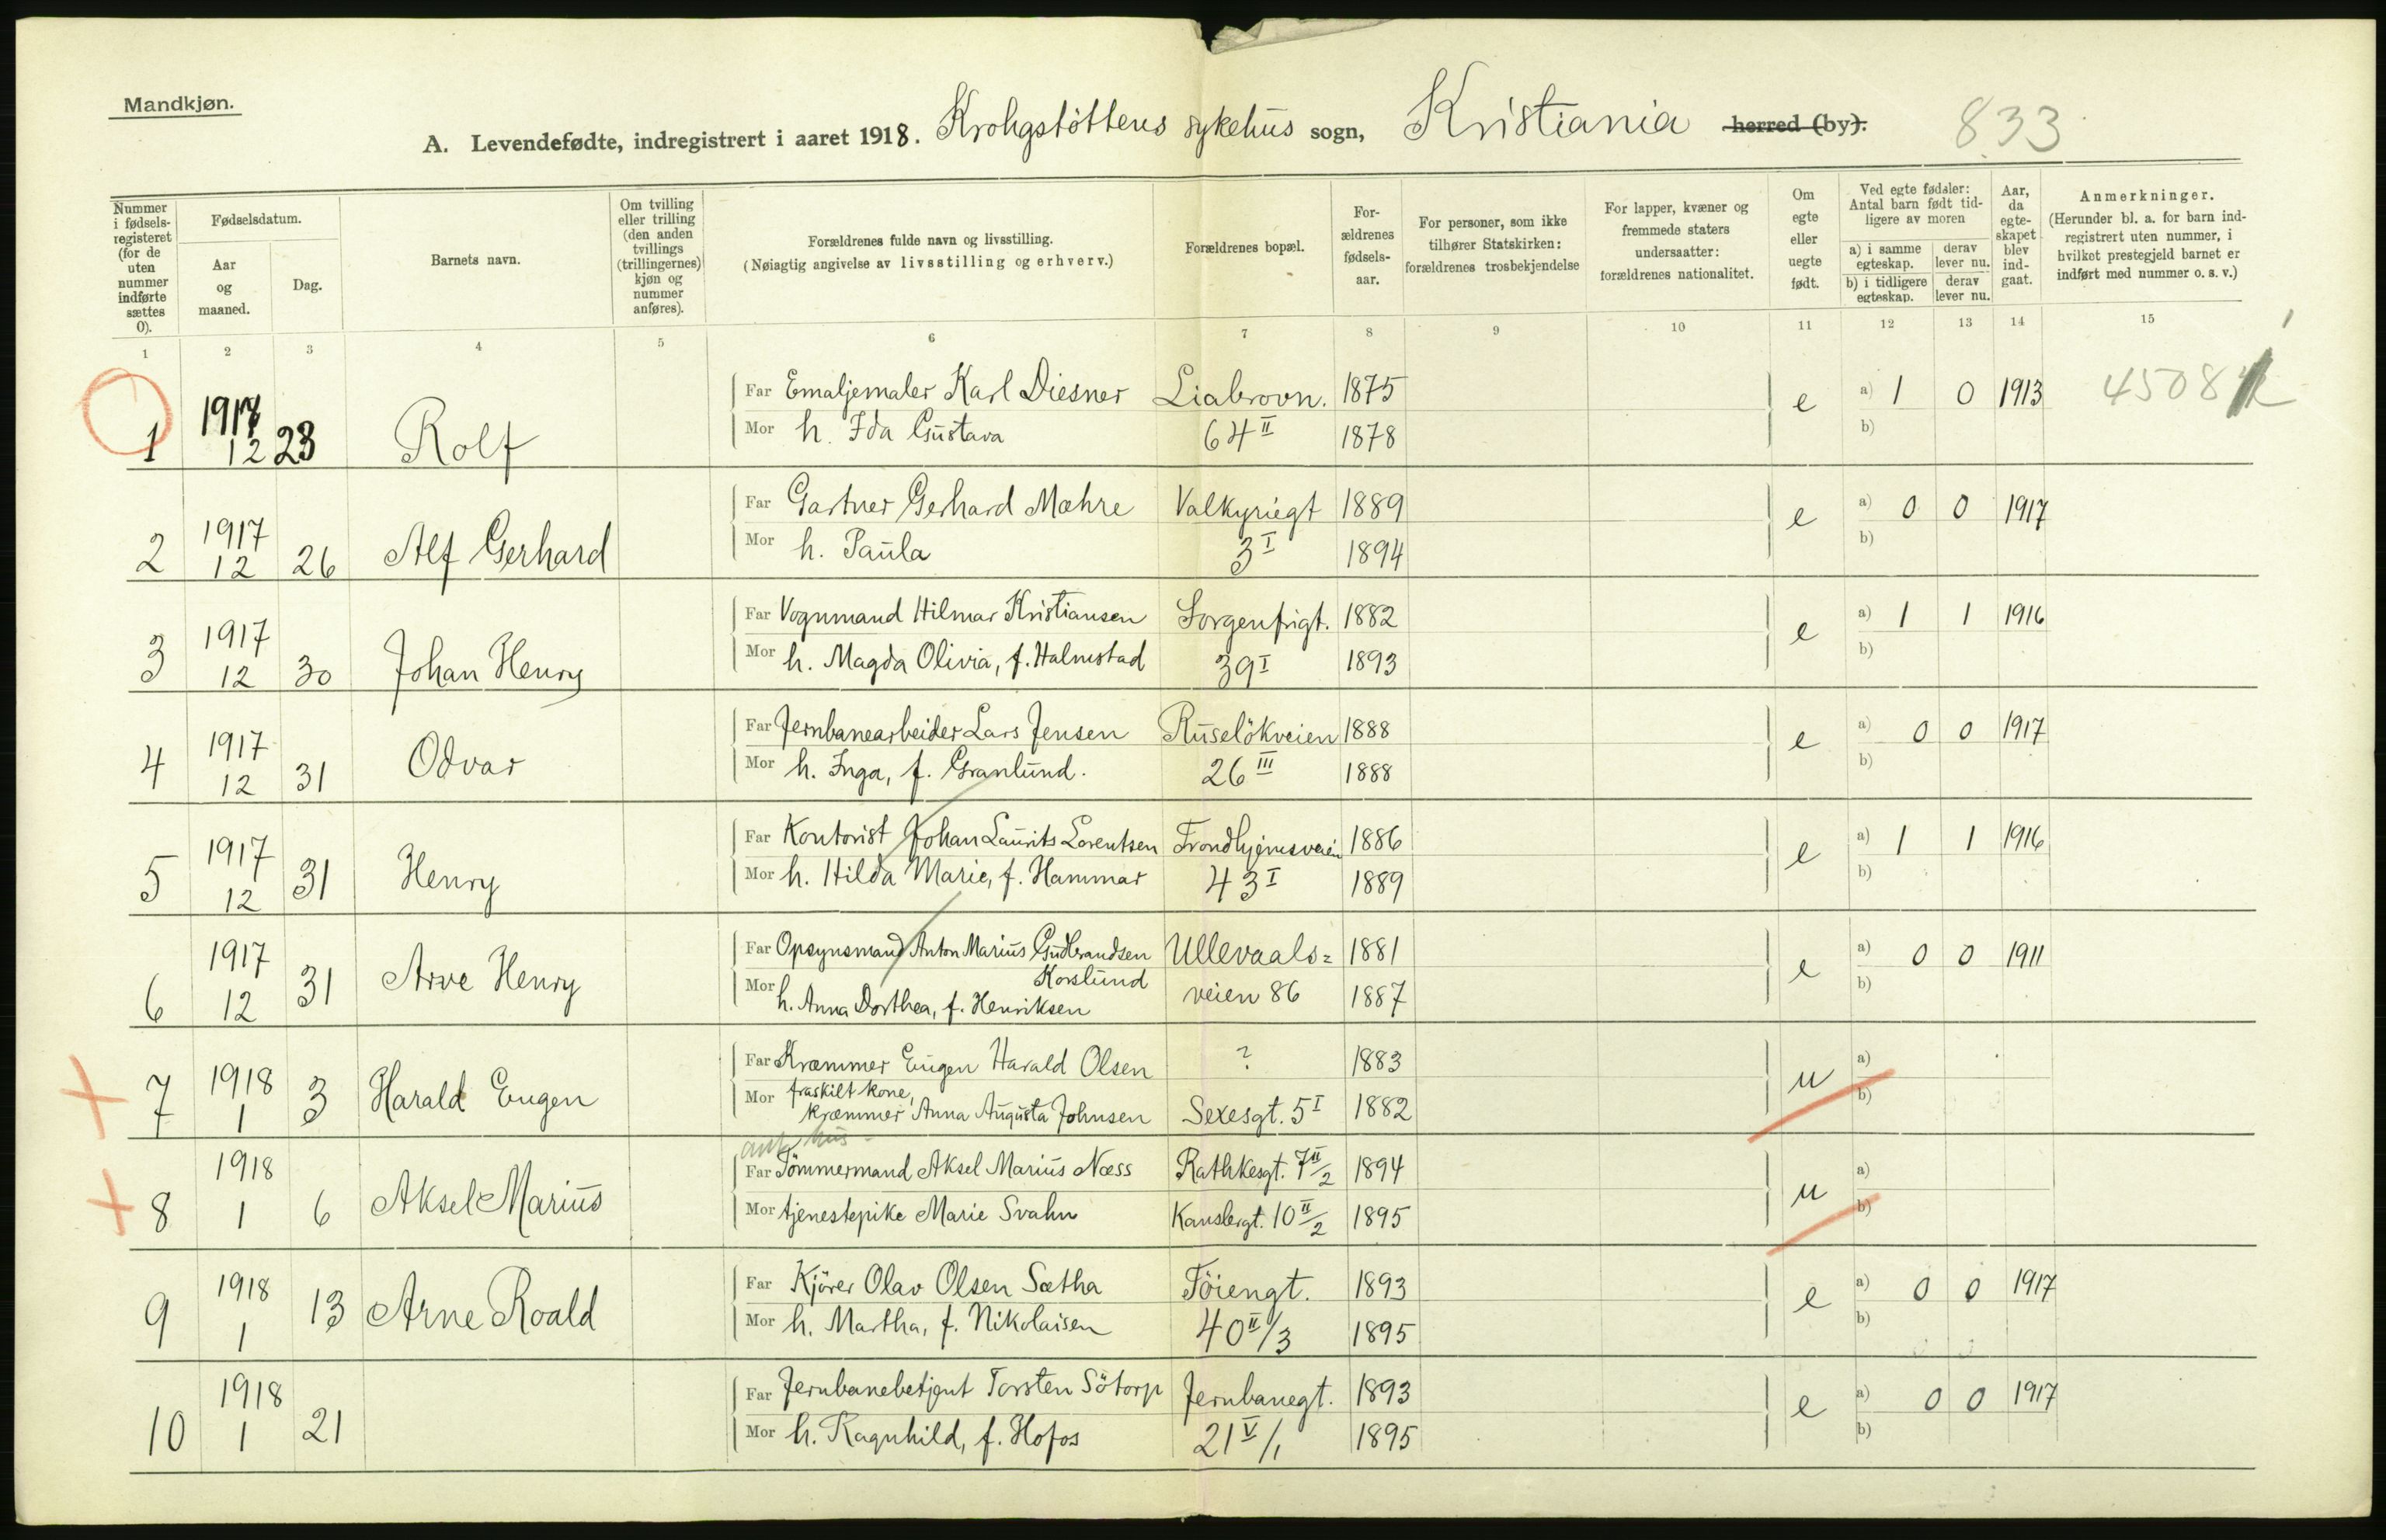 Mandkjøn.
A. Levendefødte, indregistrert i aaret 1918. Krohgstöttens sykehus sogn, Kristiania herred (by). 833
Nummer i fødselsregisteret (for de uten nummer indførte sættes 0).
Fødselsdatum.
Aar og maaned.
Dag.
Barnets navn.
Om tvilling eller trilling (den anden tvillings (trillingernes) kjøn og nummer anføres).
Forældrenes fulde navn og livsstilling.
(Nøiagtig angivelse av livsstilling og erhverv.)
Forældrenes bopæl.
Forældrenes fødselsaar.
For personer, som ikke tilhører Statskirken: forældrenes trosbekjendelse
For lapper, kvæner og fremmede staters undersaatter: forældrenes nationalitet.
Om egte eller uegte født.
Ved egte fødsler: Antal barn født tidligere av moren
a) i samme egteskap. derav lever nu.
b) i tidligere egteskap. derav lever nu.
Aar, da egteskapet blev indgaat.
Anmerkninger.
(Herunder bl. a. for barn indregistrert uten nummer, i hvilket prestegjeld barnet er indført med nummer o. s. v.)
1 2 3 4 5 6 7 8 9 10 11 12 13 14 15
1 1917 12 23 Rolf Far Emaljemaler Karl Diesner Liabrovn. 1875 e a) 1 0 1913 4508
Mor h. Ida Gustava 64 II 1878 b)
2 1917 12 26 Alf Gerhard Far Gartner Gerhard Mæhre Valkyriegt 1889 e a) 0 0 1917
Mor h. Paula 3 I 1894 b)
3 1917 12 30 Johan Henry Far Vognmand Hilmar Kristiansen Sorgenfrigt. 1882 e a) 1 1 1916
Mor h. Magda Olivia, f. Halmstad 39 I 1893 b)
4 1917 12 31 Odvar Far Jernbanearbeider Lars Jensen Ruselökveien 1888 e a) 0 0 1917
Mor h. Inga, f. Granlund. 26 III 1888 b)
5 1917 12 31 Henry Far Kontorist Johan Laurits Lorentsen Trondhjemsveien 1886 e a) 1 1 1916
Mor h. Hilda Marie, f. Hammar 43 I 1889 b)
6 1917 12 31 Arve Henry Far Opsynsmand Anton Marius Gudbrandsen Korslund Ullevaals= 1881 e a) 0 0 1911
Mor h. Anna Dorthea, f. Henriksen veien 86 1887 b)
7 1918 1 3 Harald Eugen Far Kræmmer Eugen Harald Olsen ? 1883 u a)
Mor fraskilt kone, kræmmer Anna Augusta Johnsen Sexesgt. 5 I 1882 b)
8 1918 1 6 Aksel Marius Far Tömmermand Aksel Marius Næss Rathkesgt. 7 II/2 1894 u a)
Mor tjenestepike Marie Svahn Kanslergt. 10 II/2 1895 b)
9 1918 1 13 Arne Roald Far Kjörer Olav Olsen Sætha Töiengt. 1893 e a) 0 0 1917
Mor h. Martha, f. Nikolaisen 40 II/3 1895 b)
10 1918 1 21 Far Jernbanebetjent Torsten Sötorp Jernbanegt. 1893 e a) 0 0 1917
Mor h. Ragnhild, f. Hofos 21 V/1 1895 b)